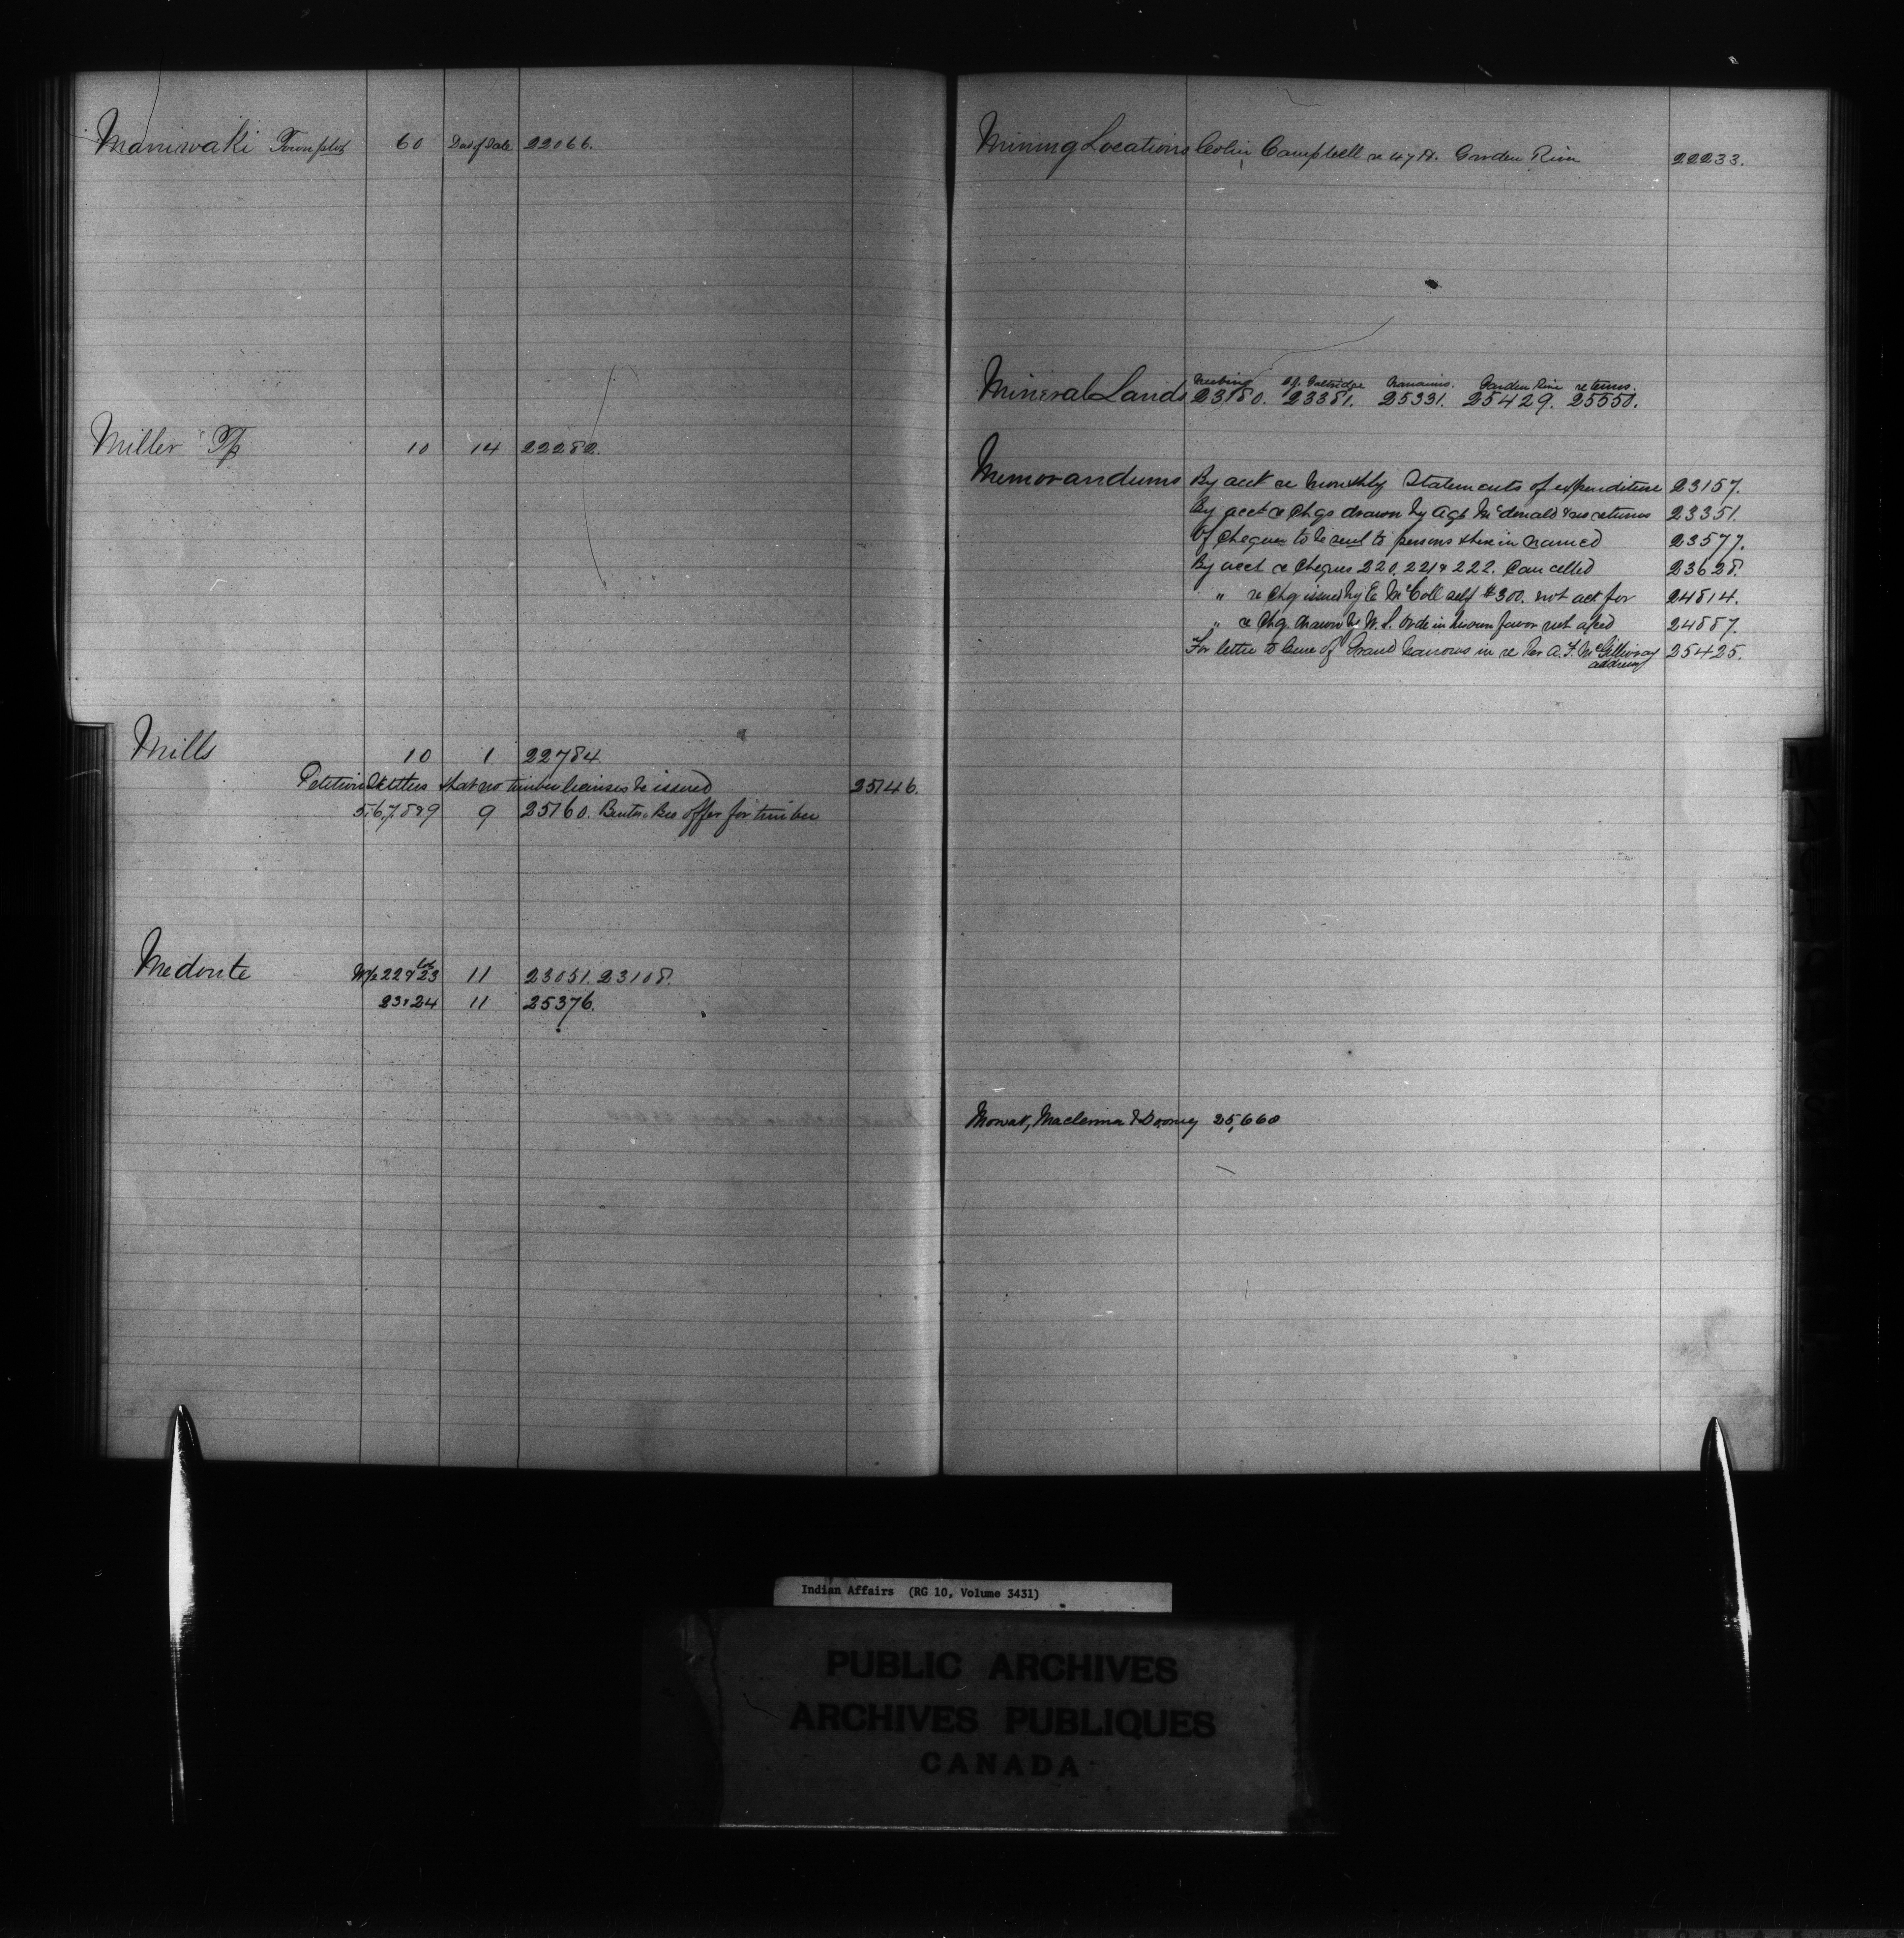 Maniwaki Townplot 60 Dec of Sale 22066.
Miller Tp 10 14 22282.
Mills 10 1 22784
Petition Settlers that no timber licenses be issued 25146.
5,6,7,8&9 9 25160. offer for timber
Medonte W½ 22 & 23 11 23051. 23108.
23&24 11 25376.
Mining Locations Colin Campbell re 47 A. Garden River 22233.
Garden River returns.
Mineral Lands 23180. 23381. 25331. 25429. 25550.
Memorandums By acct re Monthly Statements of expenditure 23157.
By acct re Chqs drawn by Agt McDonald & no returns 23351.
Of Cheques to be sent to persons therein named 23577.
By acct re Cheques 220. 221 & 222. Cancelled 23628.
" re Chq issued by E. McColl self $300. not act for 24814.
" re Chq. drawn by W. S. in his own favor not 24887.
For letter to of Grand Narrows in re Rev A. F. McGillivray 25425.
address
Mowat, Maclennan & Downey 25,660
Indian Affairs (RG 10, Volume 3431)
PUBLIC ARCHIVES
ARCHIVES PUBLIQUES
CANADA